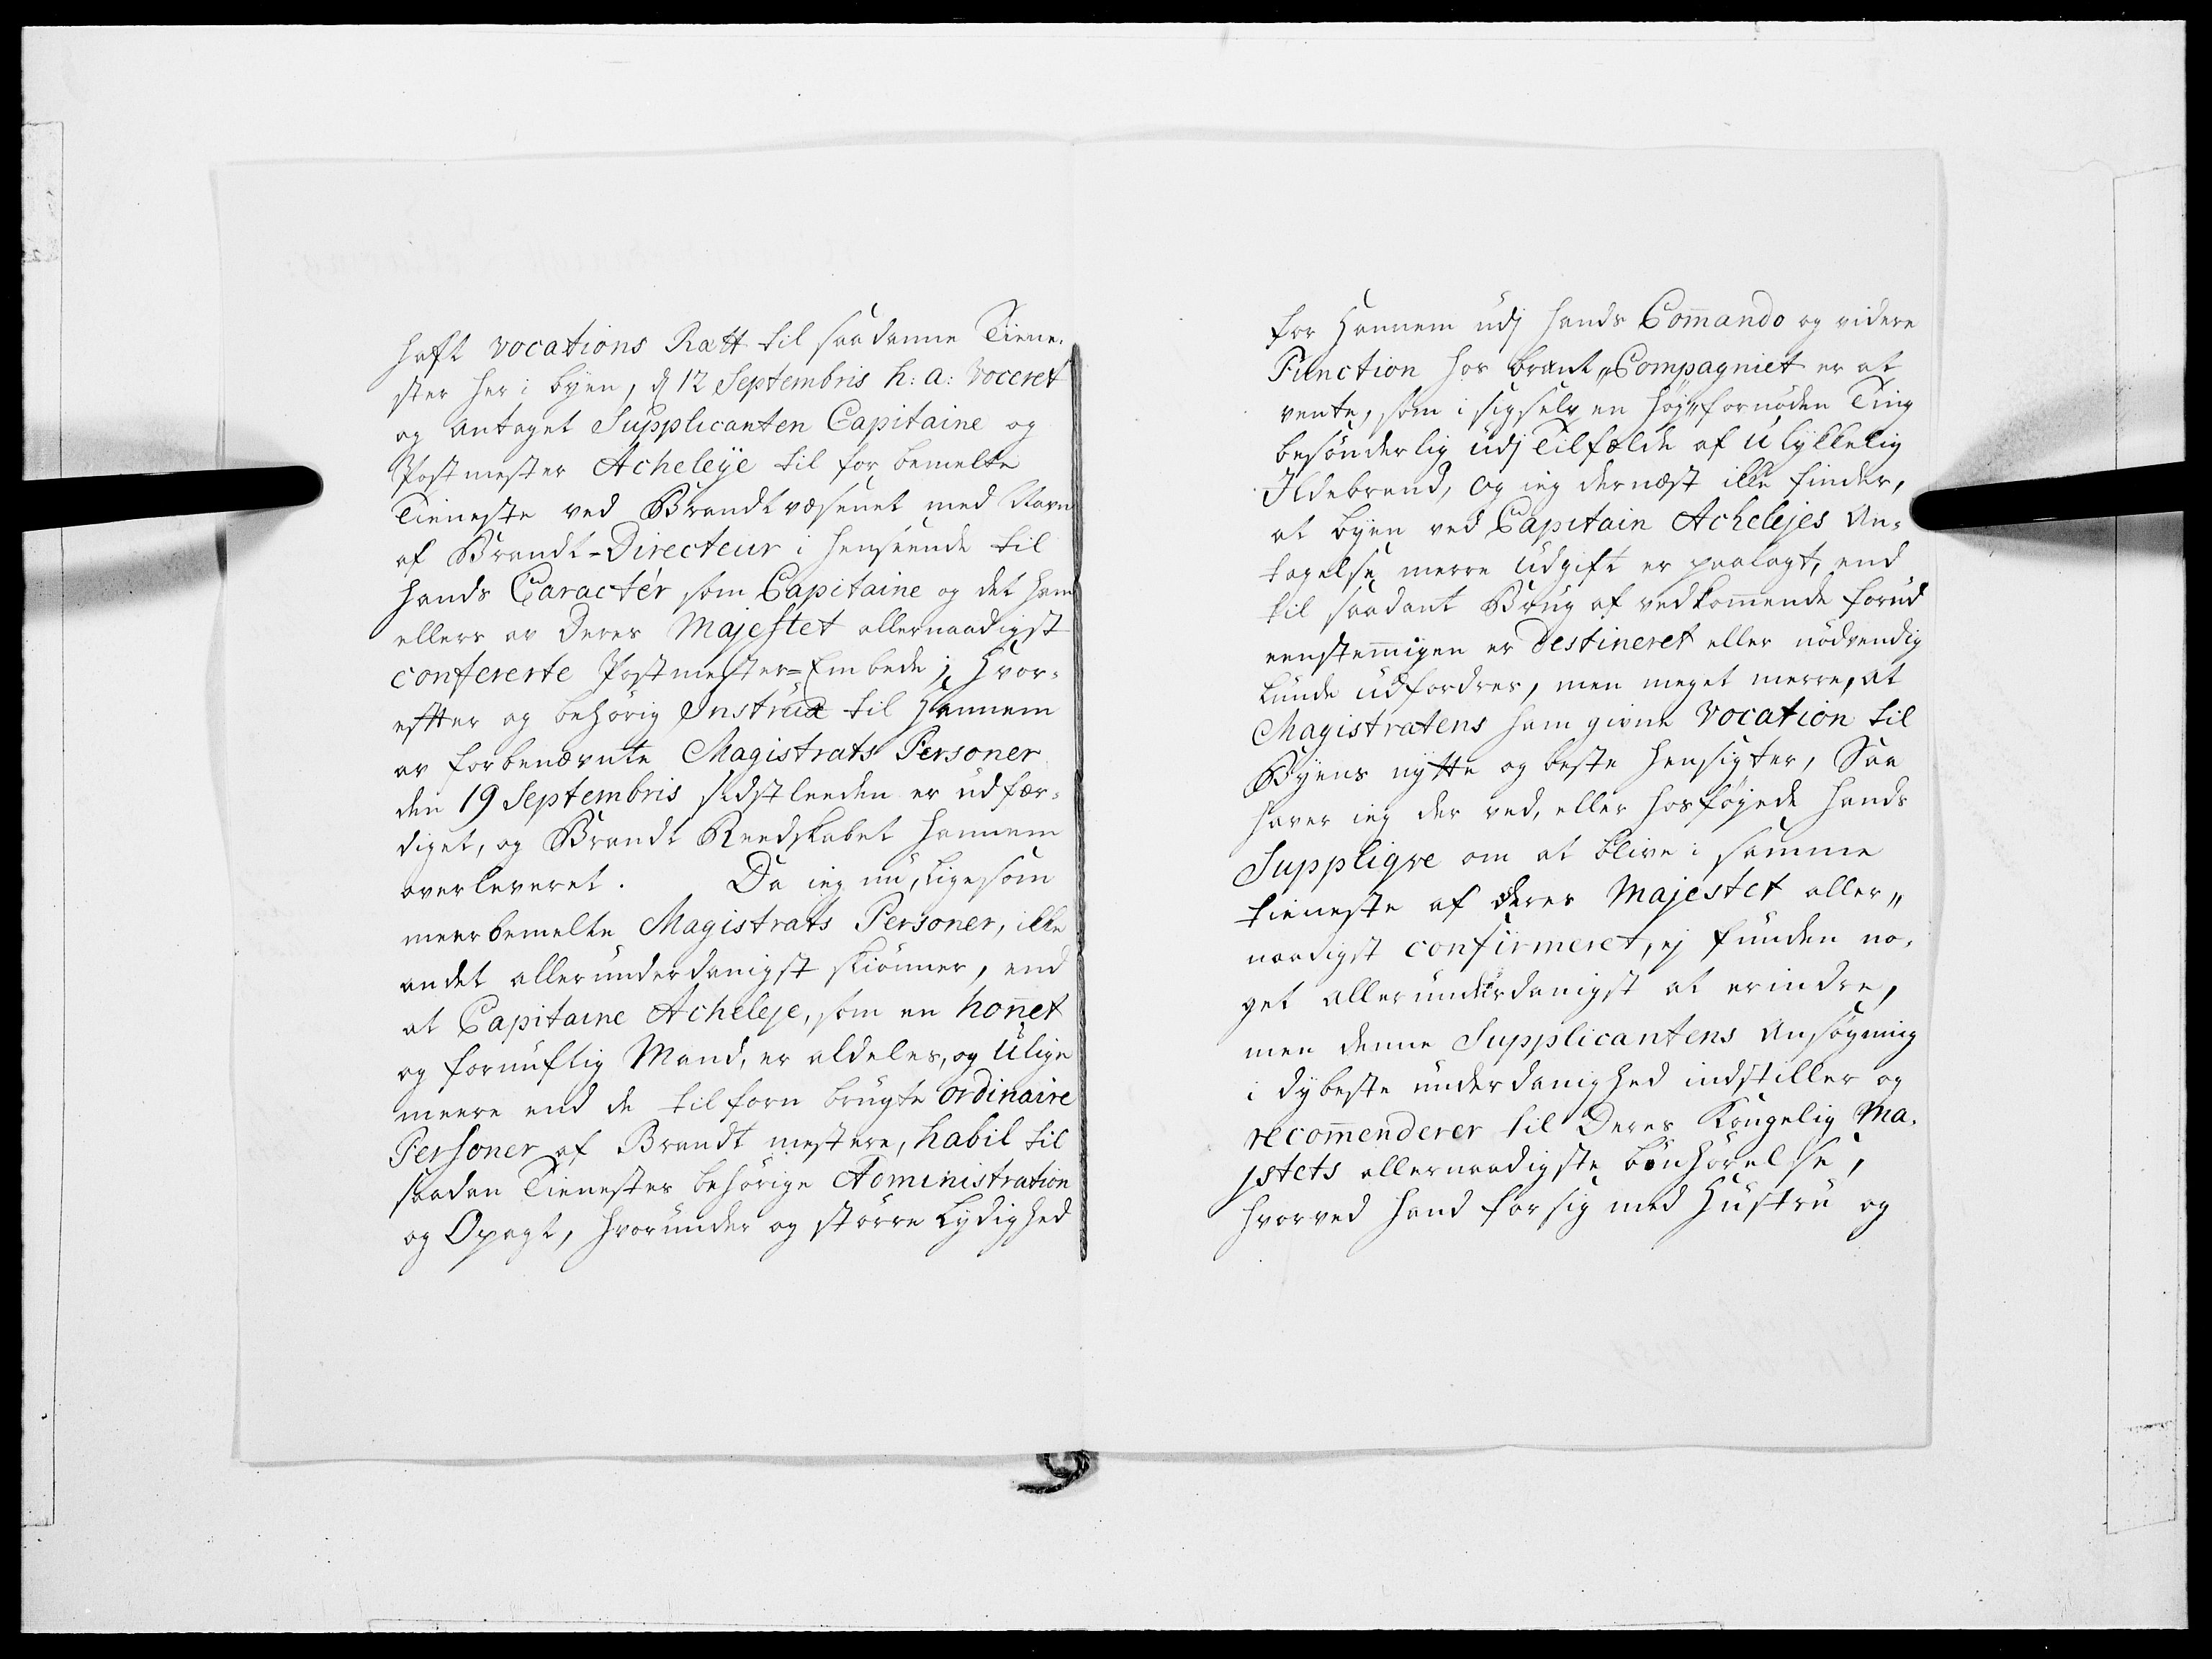 haft vocations Rætt til saadanne Tiene-
ster her i byen, d 12 Septembris h: a: voceret
og antaget Supplicanten Capitaine og
Postmester Acheleÿe til for bemelte
Tieneste ved Brandtvæsenet med Navn
af Brandt-Directeur i henseende til
hands Caractér som Capitaine og det ham
ellers av Deres Majestet allernaadigst
confererte Postmester-Embede; Hvor-
eftter og behörig Instrux til Hannem
av forbenævnte Magistrats Personer
den 19 Septembris sidstleeden er udfær-
diget, og Brandt Reedskabet hannem
overleveret. Da ieg nu, ligesom
meerbemelte Magistrats Personer, ikke
andet allerunderdanigst skiönner, end
at Capitaine Acheleje, som en honnet
og fornuftig Mand, er aldeles, og Ulige
meere end de tilforn brugte ordinaire
Personer af Brandt mestere, habil til
saadan Tienestes behörige Administration
og Opagt, hvorunder og större Lydighed
for Hannem udj hands Commando og videre
Function hos brant„Compagniet er at
vente, som i sigselv en höj„fornöden Ting
besönderlig udj Tilfælde af Ulykkelig
Ildebrand, og ieg dernæst ikke finder,
at byen ved Capitain Achelejes An-
tagelse meere Udgift er paalagt, end
til saadant Brug af vedkommende forud
eenstemmigen er destineret eller nödvendig
kunde udfordres, men meget meere, at
Magistratens ham givne vocation til
Byens nytte og beste hensigter, Saa
haver ieg der ved, eller hosföjede hands
Suppliqve om at blive i samme
tieneste af deres Majestet aller„
naadigst confirmeret, ej funden no-
get allerunderdanigst at erindre,
men denne Supplicantens Ansögning
i dybeste underdanighed indstiller og
recommenderer til Deres Kongelig Ma-
jstets allernaadigste bönhörelse,
hvorved hand for sig med Hustru og